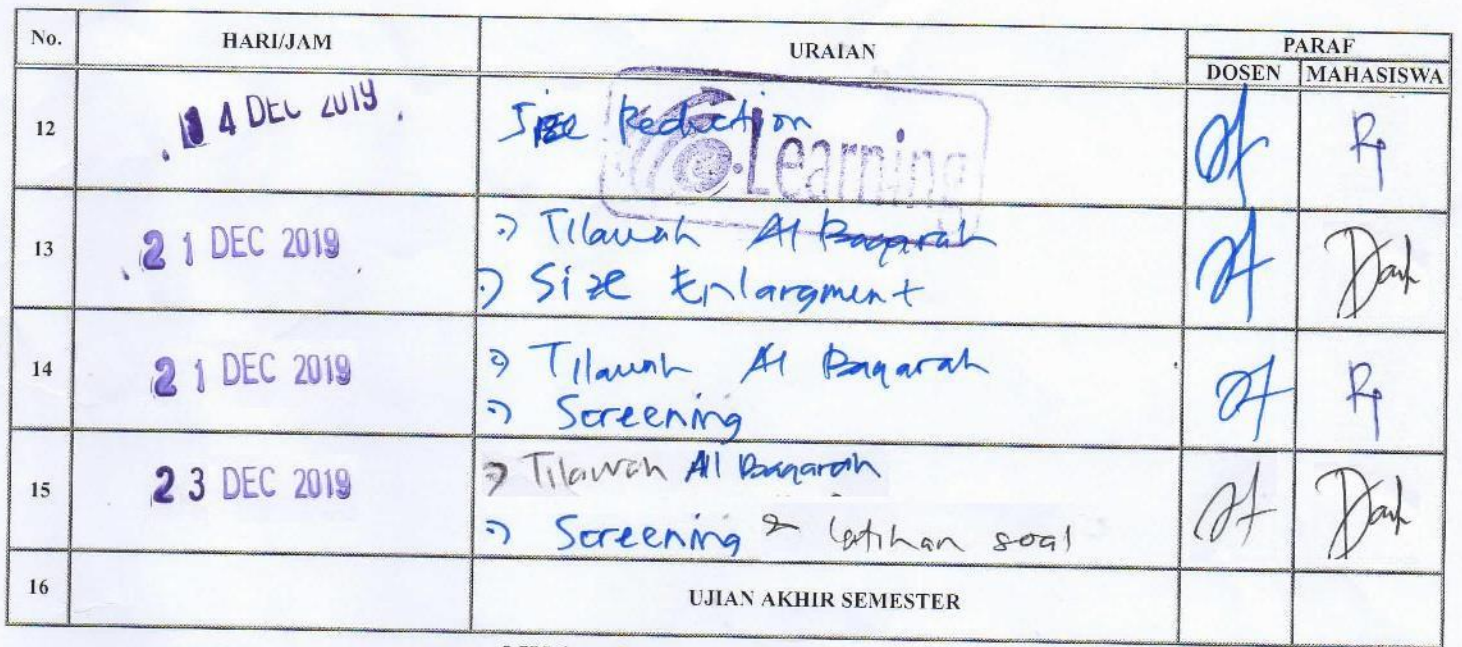 No. HARI/JAM URAIAN PARAF
DOSEN MAHASISWA
12 14 DEC 2019 Size Reduction
e-Learning
13 21 DEC 2019 Tilawah Al Baqarah
Size Enlargment
14 21 DEC 2019 Tilawah Al Baqarah
Screening
15 23 DEC 2019 Tilawah All Baqarah
Screening & latihan soal
16 UJIAN AKHIR SEMESTER